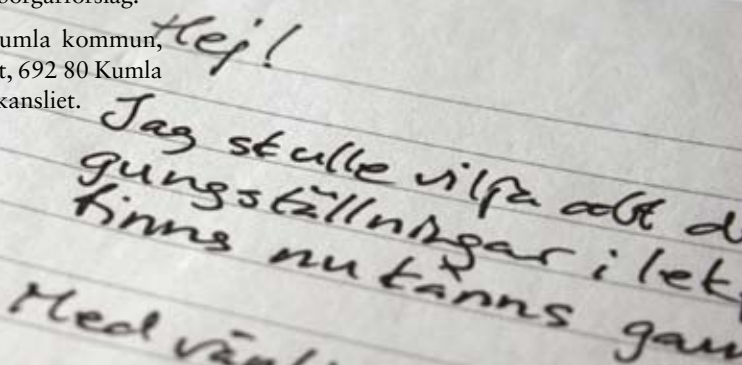 borgarförslag.
umla kommun,
t, 692 80 Kumla
kansliet.
Hej!
Jag skulle vilja att d
gungställningar i lek
finns nu känns gam
Med vänl